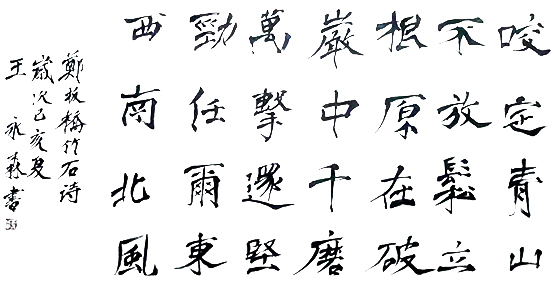 咬定青山
不放鬆立
根原在破
巖中千磨
萬擊還堅
勁任爾東
西南北風
鄭板橋竹石詩
歲次己亥夏
王永森書